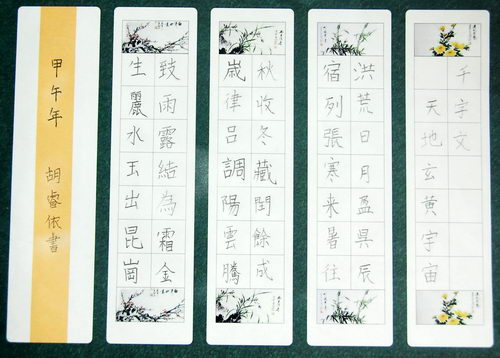 千字文
天地玄黄宇宙
洪荒日月盈昃辰
宿列張寒来暑往
秋收冬藏閏餘成
歲律呂調陽雲騰
致雨露結為霜金
生麗水玉出昆崗
甲午年 胡睿依書